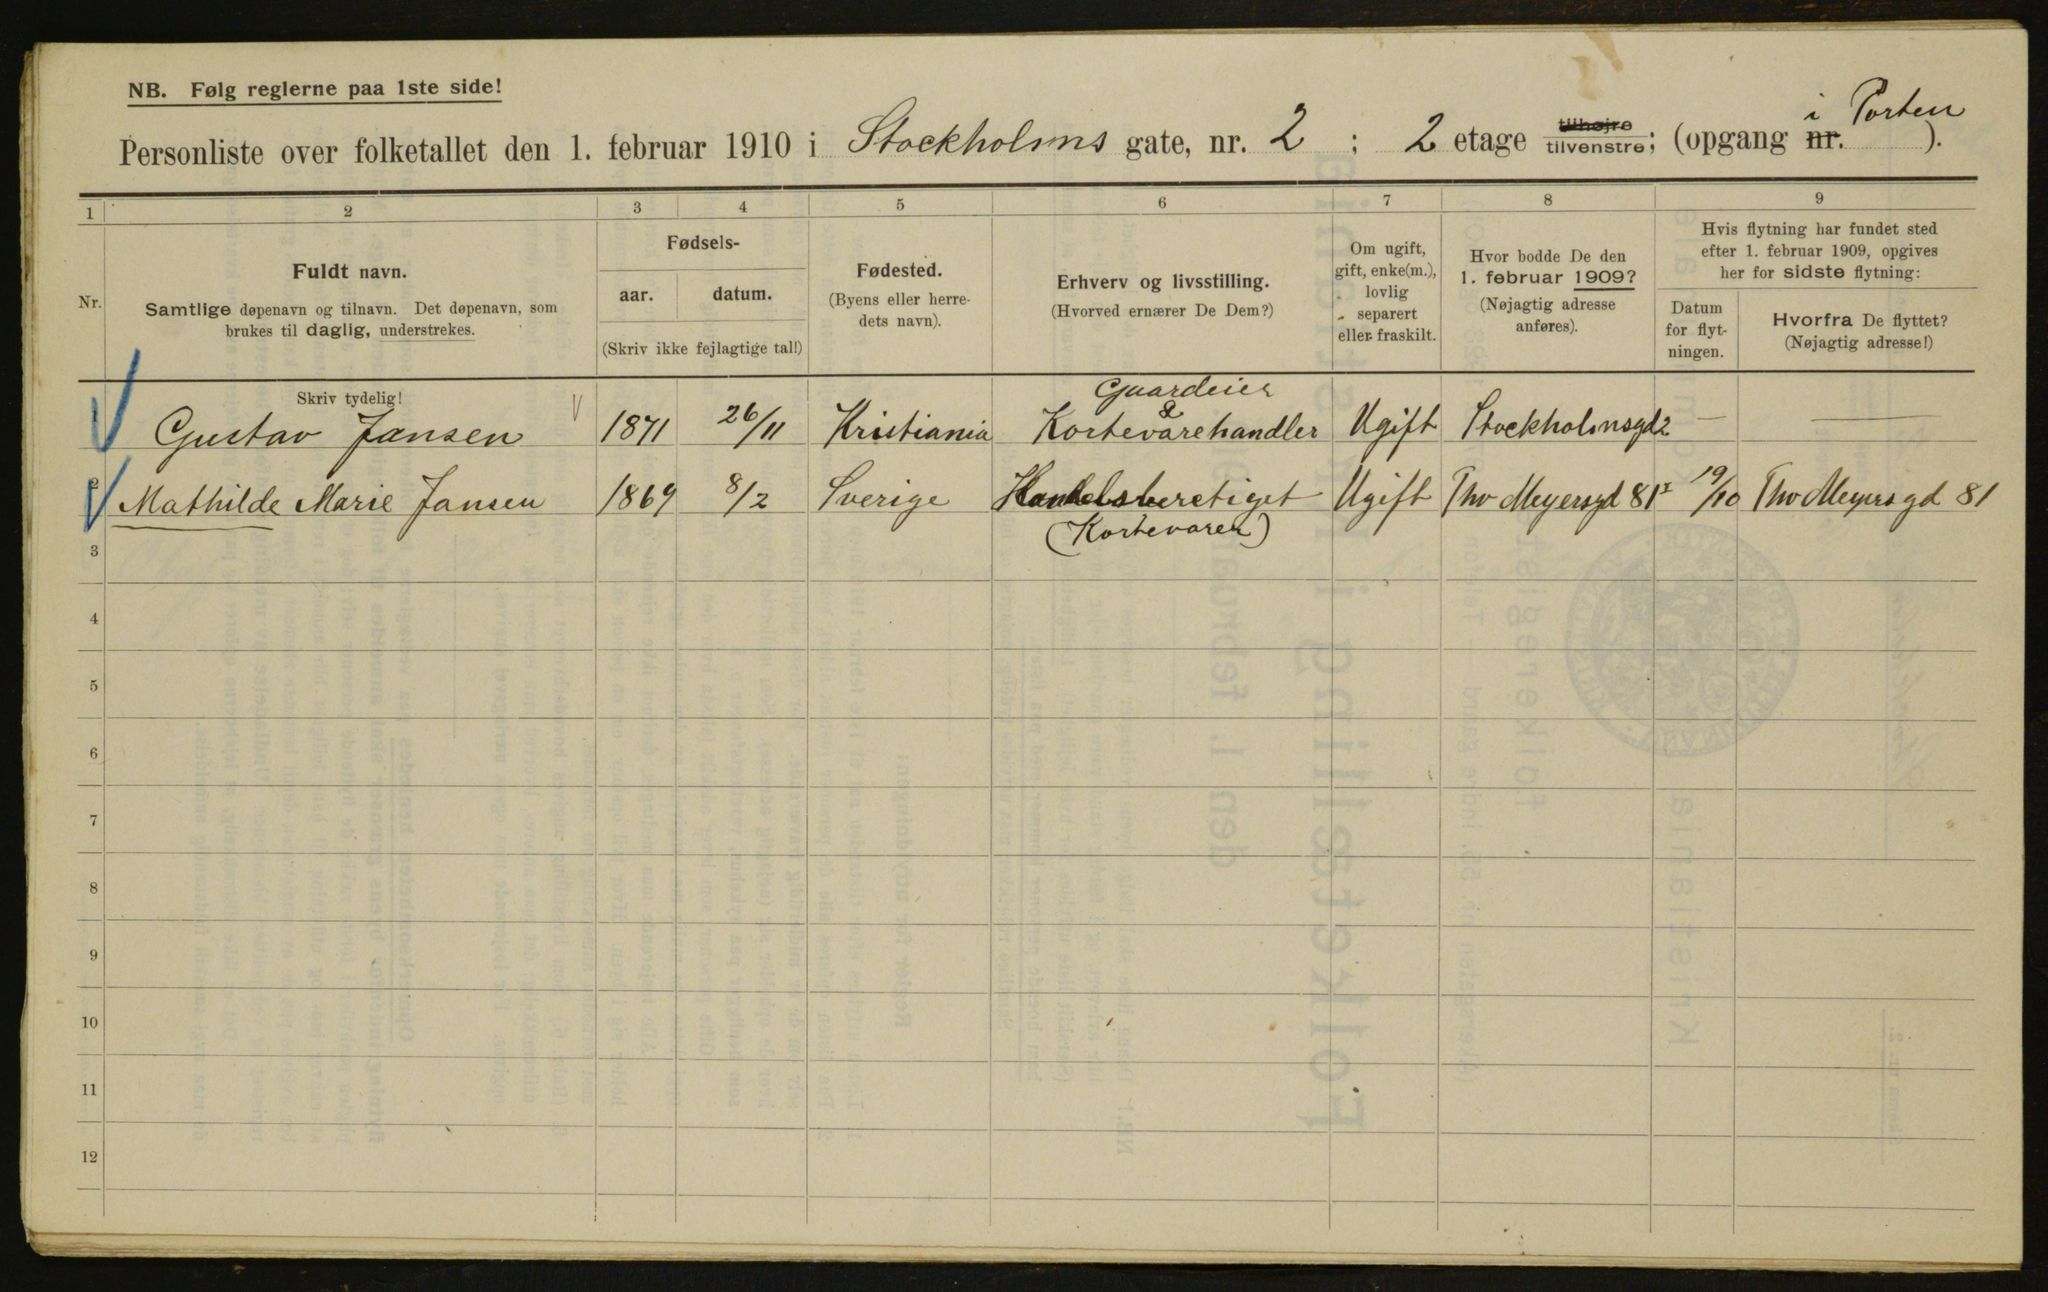 NB. Følg reglerne paa 1ste side!
Personliste over folketallet den 1. februar 1910 i Stockholms gate, nr. 2 ; 2 etage tilhøjre tilvenstre; (opgang nr. i Porten ).
1 2 3 4 5 6 7 8 9
Nr.
Fuldt navn.
Samtlige døpenavn og tilnavn. Det døpenavn, som
brukes til daglig, understrekes.
Fødsels-
aar. datum.
(Skriv ikke fejlagtige tal!)
Fødested.
(Byens eller herre-
dets navn).
Erhverv og livsstilling.
(Hvorved ernærer De Dem?)
Om ugift,
gift, enke(m.),
lovlig
separert
eller fraskilt.
Hvor bodde De den
1. februar 1909?
(Nøjagtig adresse
anføres).
Hvis flytning har fundet sted
efter 1. februar 1909, opgives
her for sidste flytning:
Datum
for flyt-
ningen.
Hvorfra De flyttet?
(Nøjagtig adresse!)
Skriv tydelig!
Gaardeier
&
1 Gustav Jansen 1871 26/11 Kristiania Kortevarehandler Ugift Stockholmsgd 2 — —
2 Mathilde Marie Jansen 1869 8/2 Sverige Handelsberetiget Ugift Thv Meyersgd 81 19/10 Thv Meyersgd 81
(Kortevarer)
3
4
5
6
7
8
9
10
11
12